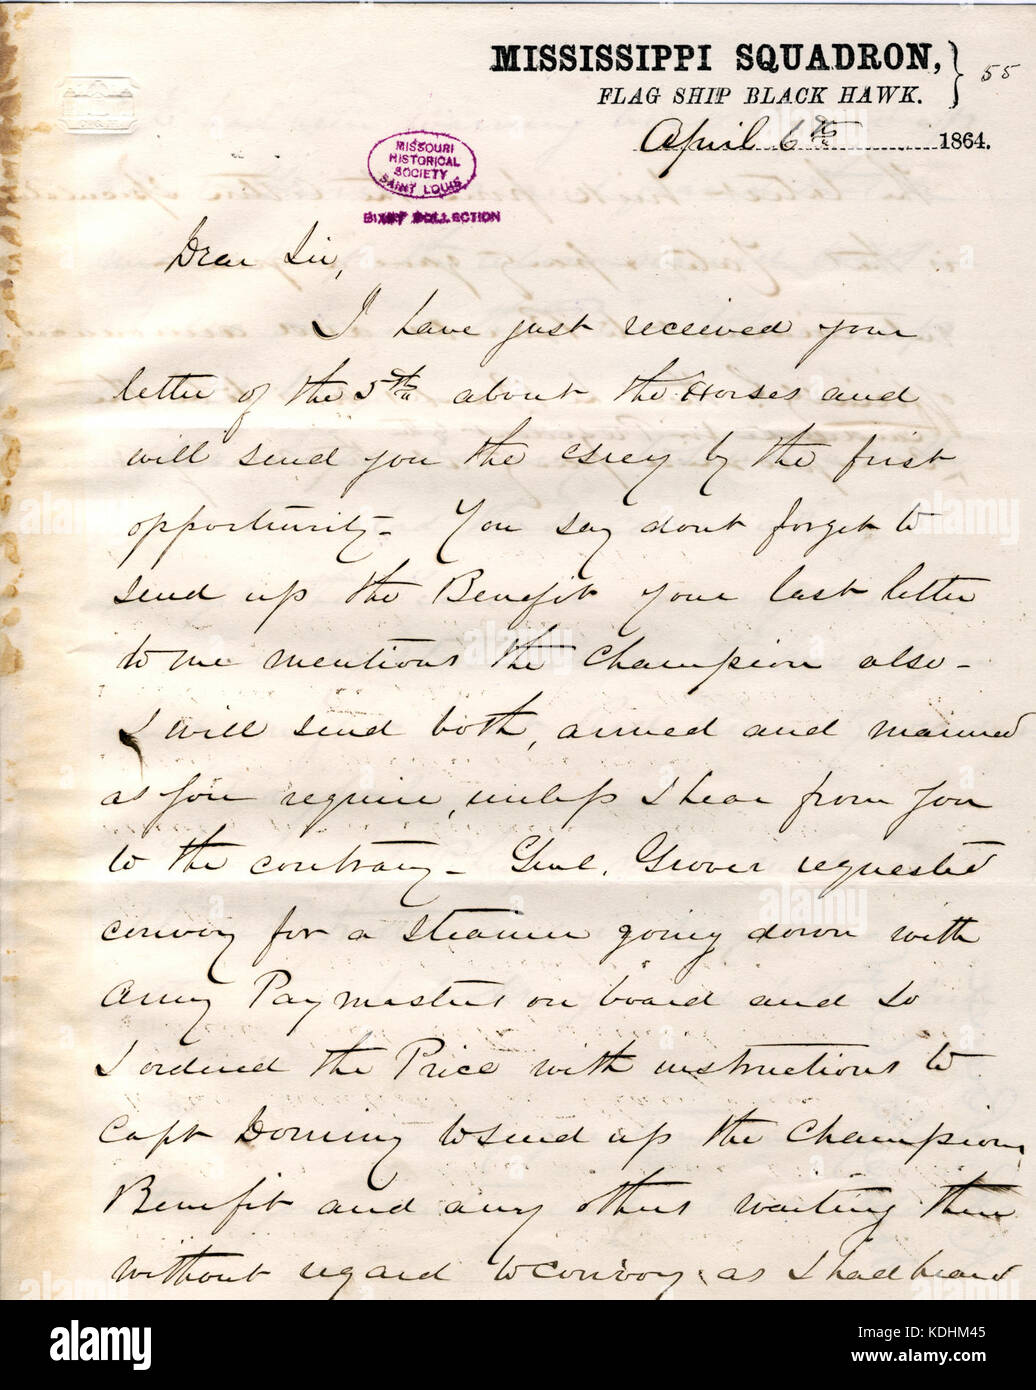 MISSISSIPPI SQUADRON,
FLAG SHIP BLACK HAWK.
55
April 6th 1864.
MISSOURI
HISTORICAL
SOCIETY
SAINT LOUIS
BIXBY COLLECTION
Dear Sir,
I have just received your
letter of the 5th about the Horses and
will send you the by the first
opportunity - You say dont forget to
send up the Benefit your last letter
to me mentions the Champion also -
I will send both, armed and manned
as you require, unless I hear from you
to the contrary - Genl. Grover requested
convoy for a steamer going down with
Army Paymasters on board and so
I ordered the Price with instructions to
Capt Dominy to send up the Champion,
Benefit and any others waiting there
without regard to convoy, as I had heard
alamy
Image ID: KDHM45
www.alamy.com